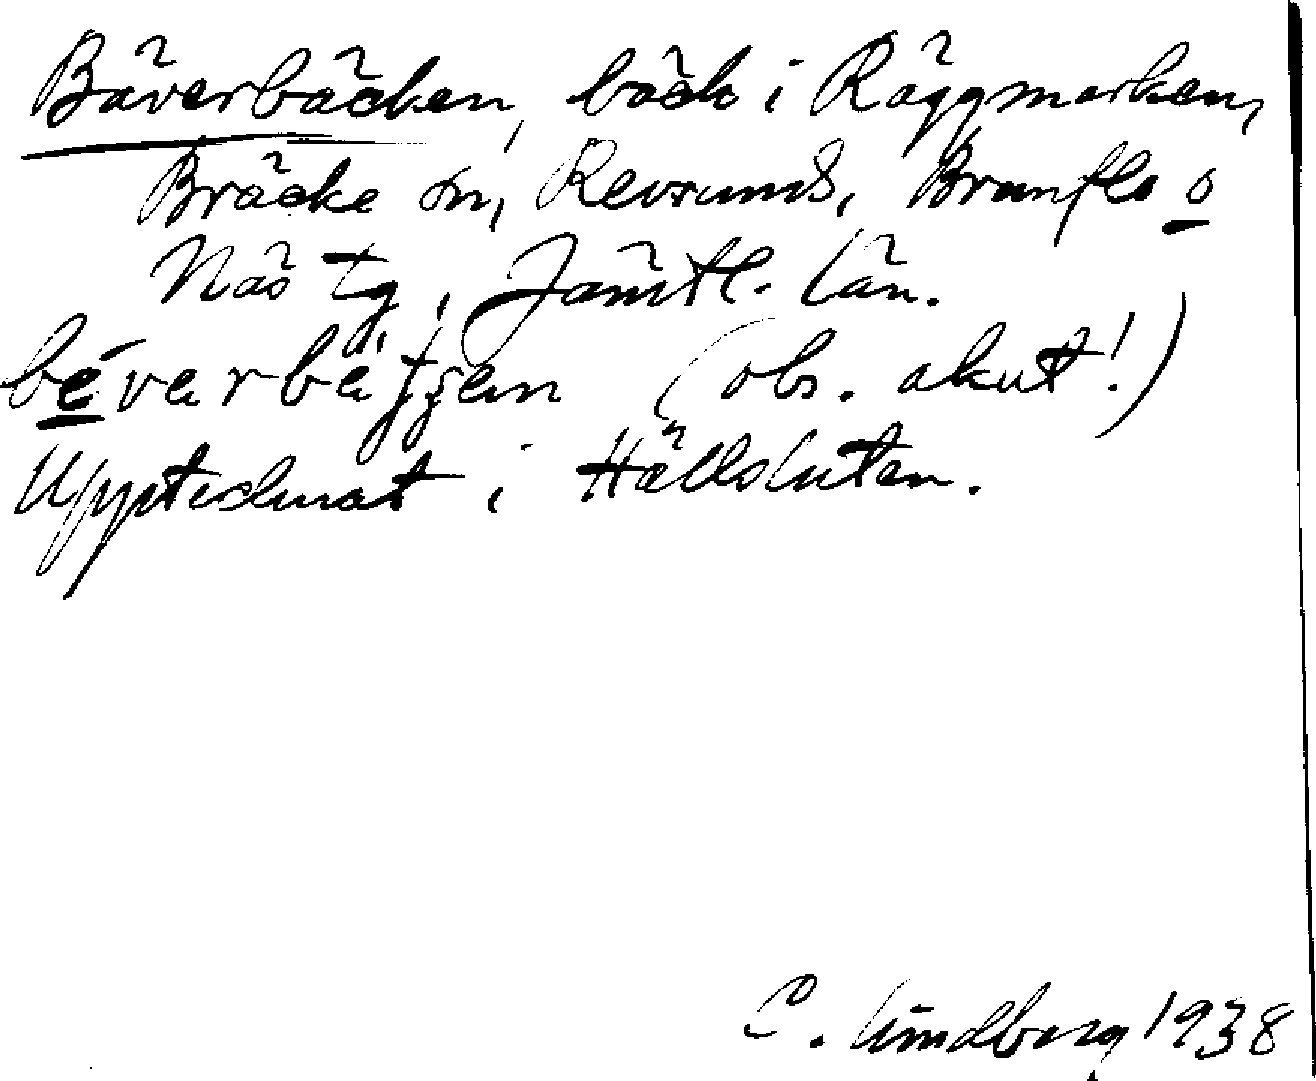 Bäverbäcken, bäck i Räggmarken,
Bräcke sn, Revsunds, Brunflo o
Näs tg, Jämtl. län.
bé̱verbętʃen (obs. akut!)
Upptecknat i Hällsluten.
C. Lindberg 1938